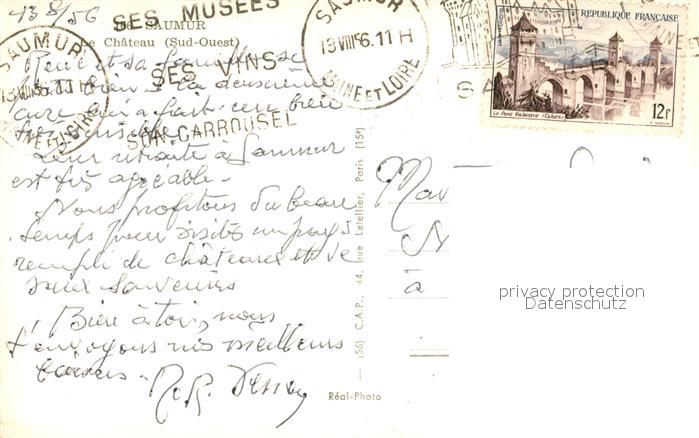 13/8/56
SES MUSÉES
SES VINS
SON CARROUSEL
SAUMUR
Le Château (Sud-Ouest)
SAUMUR
13 VIII 56. 11 H
MAINE ET LOIRE
SAUMUR
13 VIII 56. 11 H
MAINE ET LOIRE
RÉPUBLIQUE FRANÇAISE
POSTES
Le Pont Valentré (Cahors)
12F
et sa famille se
bien. La deuxième
cure a fait bien
Leur retraite à Saumur
est très agréable.
Nous profitons du beau
temps pour visiter un pays
rempli de châteaux et de
vieux souvenirs
Bien à toi, nous
t'envoyons nos meilleurs
baisers.
(56) C.A.P., 44, rue Letellier, Paris (15e)
Réal-Photo
à
privacy protection
Datenschutz